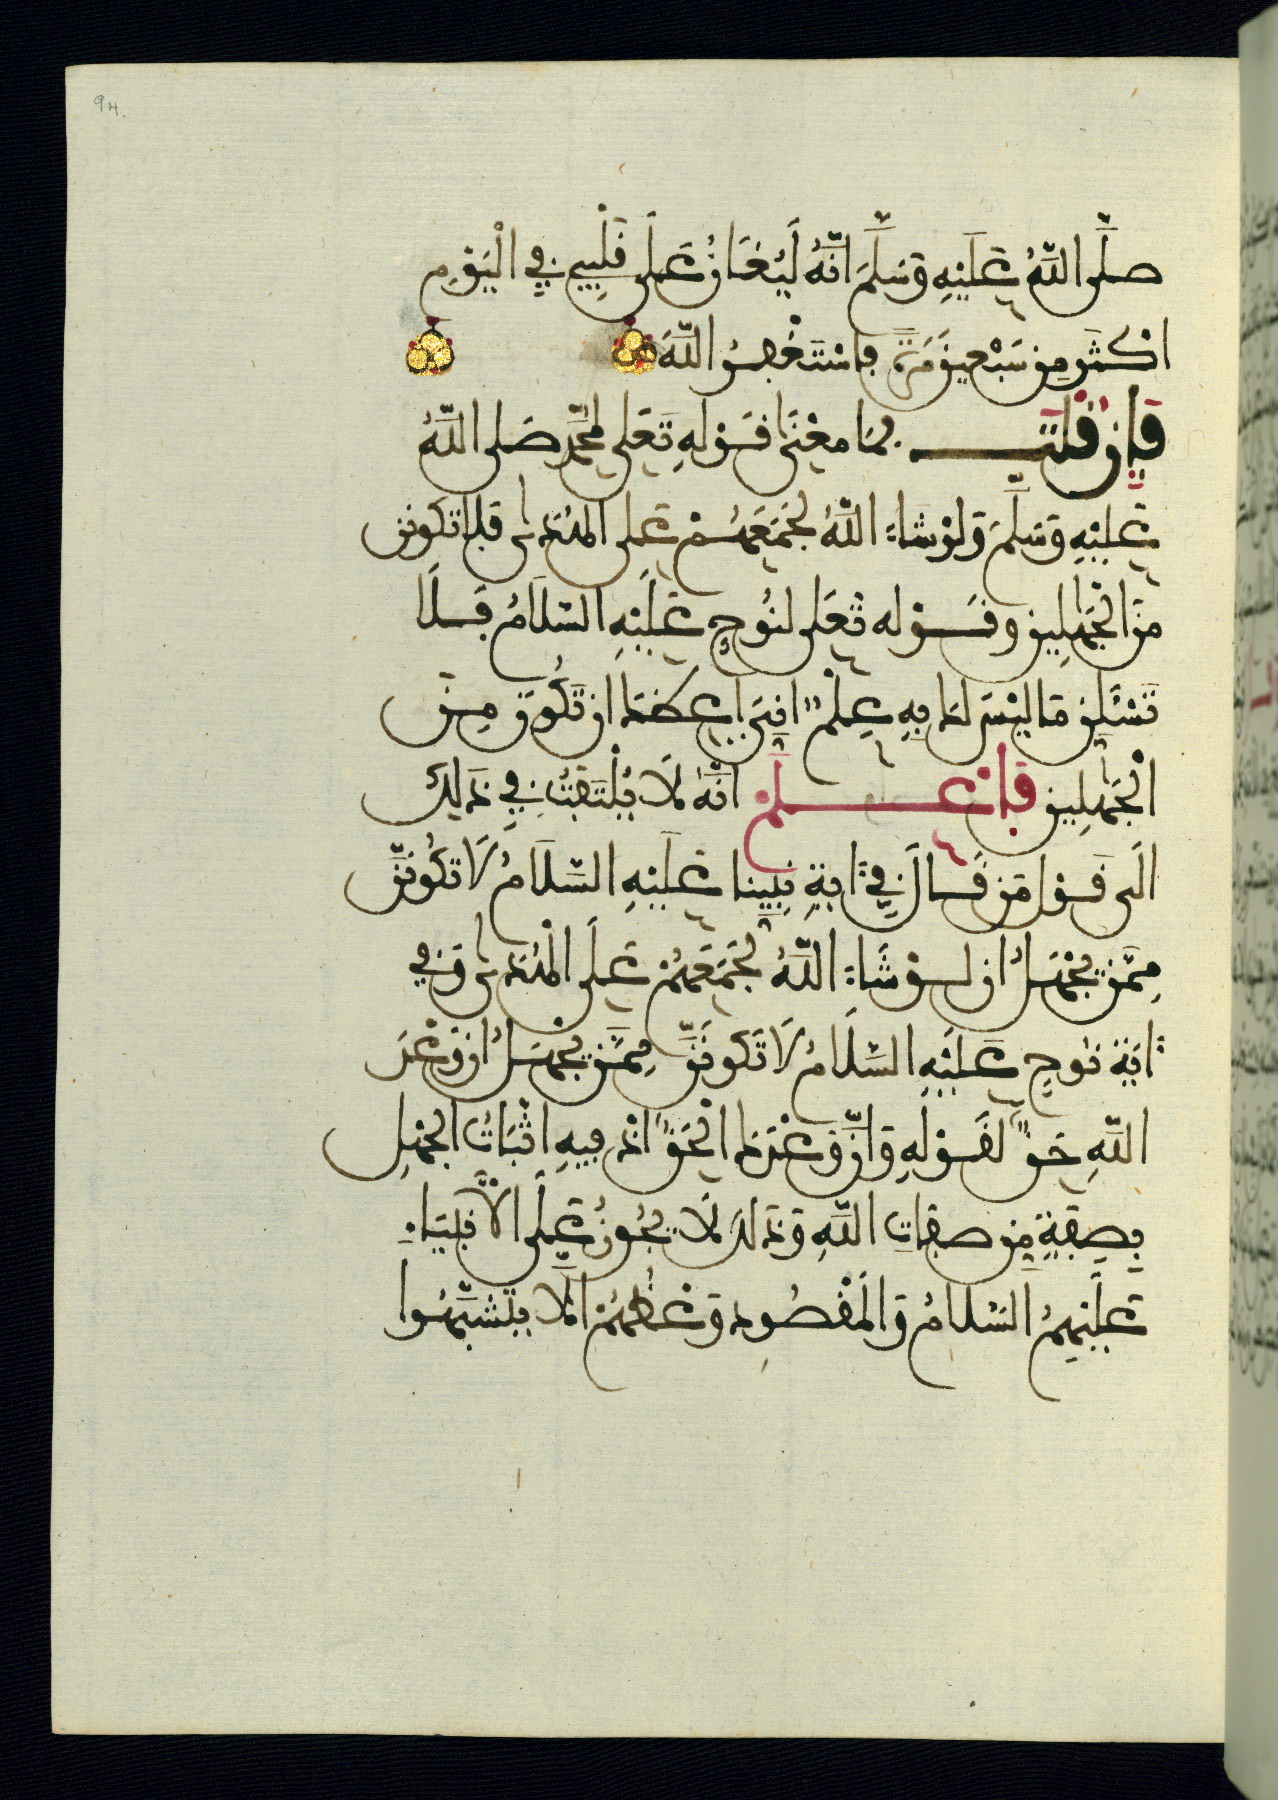 صَلَّى اللَّهُ عَلَيْهِ وَسَلَّمَ انَّهُ لَيُغَانُ عَلَى قَلْبِي فِي الْيَوْمِ
اكثر مِن سَبْعِينَ مَرَّةً فاسْتَغْفِرُ اللَّهَ
فَإِن قُلْتَ فمَا مَعْنَى قَوْلِهِ تَعَلى لمُحَمَّدٍ صَلى اللَّهُ
عَلَيْهِ وَسَلَّمَ وَلَوْ شَاءَ اللَّهُ لَجَمَعَهُمْ عَلى الهُدَى فَلا تكونن
مِنَ الْجَهِلِينَ وقَوْله تَعَلى لنُوحٍ عَلَيْهِ السَّلَامُ فَلَا
تَسْئَلَنِ مَا لَيْسَ لَكَ بِهِ عِلْمٌ انِّيَ أعِظُكَ ان تَكُونَ مِنَ
الْجَهِلِينَ فَاعْلَمْ انَّهُ لَا يُلْتَفَتُ فِي ذَلِكَ
الَى قَوْلِ مَن قَالَ فِي ءَايَةِ نَبِيِّنا عَلَيْهِ السَّلَامُ لَا تَكُونَنَّ
مِمَّن يَجْهَلُ ان لَوْ شَاءَ اللَّهُ لَجَمَعَهُمْ عَلَى الْهُدَى وَفِي
ءَايَةِ نُوحٍ عَلَيْهِ السَّلَامُ لَا تَكُونَنَّ مِمَّن يَجْهَلُ ان وَعْدَ
اللَّهِ حَقٌّ لقَوْلِهِ وَانَّ وَعْدَكَ الْحَقُّ اذ فِيهِ اثْبَاتُ الجَهْلِ
بِصِفَةٍ مِن صفَاتِ اللَّهِ وَذَلك لَا يَجُوزُ عَلَى الْأَنْبِيَاءِ
عَلَيْهِمُ السَّلَامُ وَالْمَقْصُودُ وَعْظُهُمْ الَّا يتَشَبَّهُوا